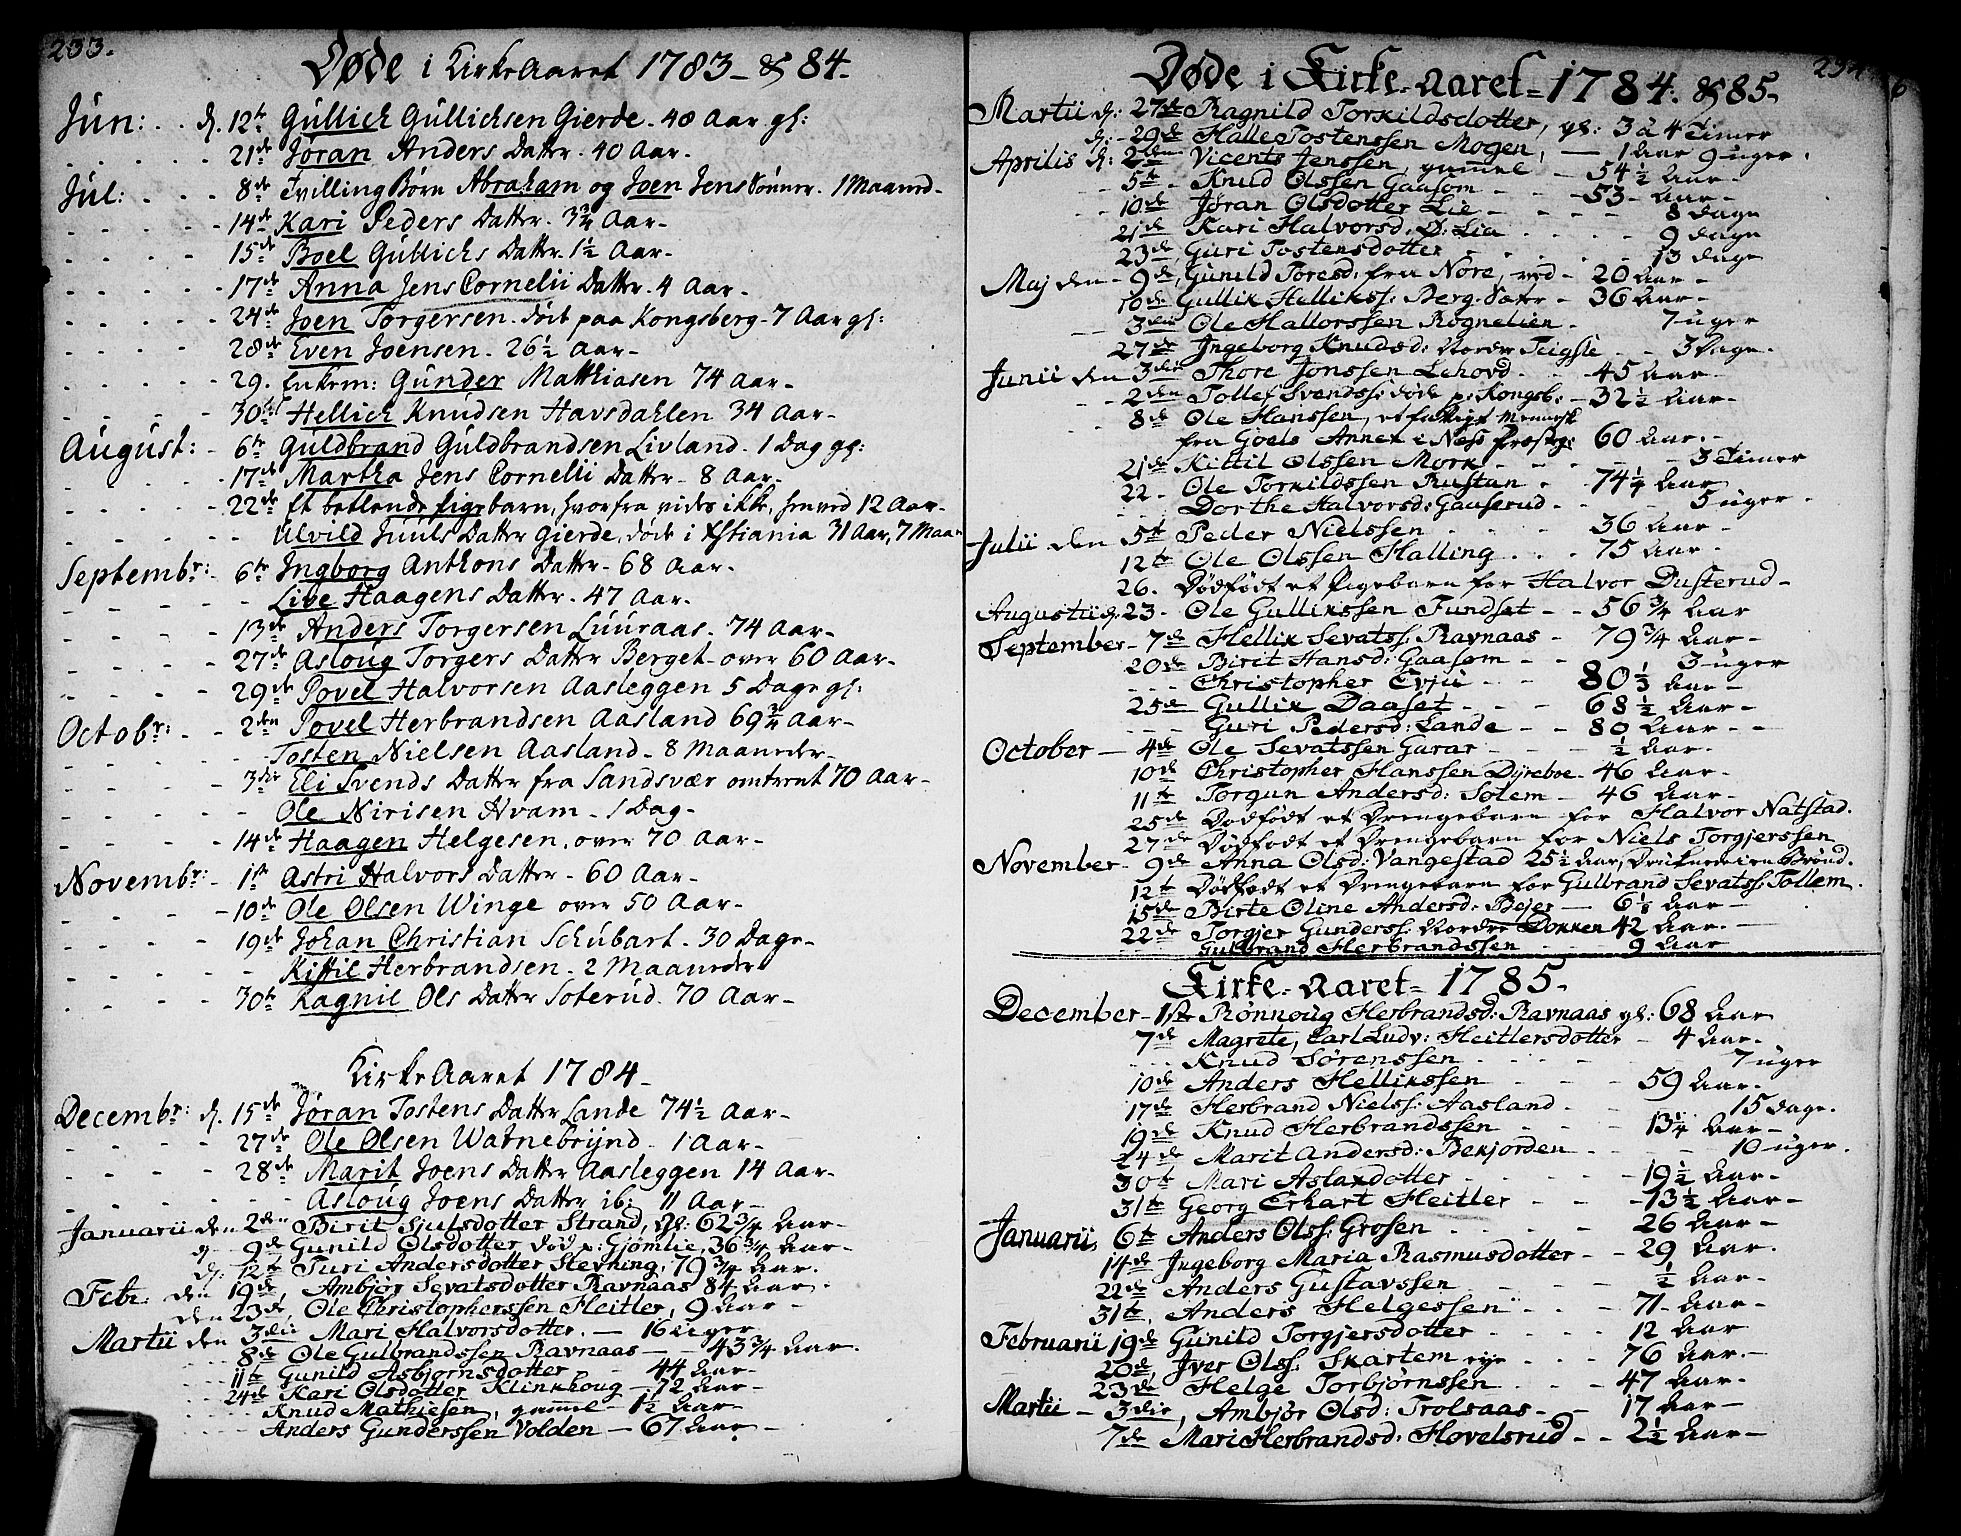 233.
Døde i Kirke Aaret 1783 & 84.
Jun: . . d. 12te Gullich Gullichsen Gierde. 40 Aar gl:
21de Jøran Anders Datter. 40 Aar.
Jul: . . . 8de Tvilling Børn Abraham og Joen Jens Sønner. 1 Maaned.
14de Kari Peders Datter. 3¾ Aar.
15de Boel Gullichs Datter. 1½ Aar.
17de Anna Jens Cornelii Datter. 4 Aar.
24de Joen Torgersen. død paa Kongsberg. 7 Aar gl:
28de Even Joensen. 26½ Aar.
29. Enkem: Gunder Matthiasen 74 Aar.
30te Hellich Knudsen Havsdahlen 34 Aar.
August: . 6te Guldbrand Guldbrandsen Livland. 1 Dag gl:
17de Martha Jens Cornelii Datter. 8 Aar.
22de Et betlende Pigebarn, hvorfra vides ikke, henved 12 Aar.
Ulvild Juuls Datter Gierde, døde i Xstiania 31 Aar, 7 Maan
Septembr: . 6te Ingborg Anthons Datter. 68 Aar.
Live Haagens Datter. 47 Aar.
13de Anders Torgersen Luuraas. 74 Aar.
27de Asloug Torgers Datter Berget. over 60 Aar.
29de Povel Halvorsen Aasleggen 5 Dage gl:
Octobr: . . 2den Povel Herbrandsen Aasland 69¾ Aar.
Tosten Nielsen Aasland. 8 Maaneder.
3die Eli Svends Datter fra Sandsvær omtrent 70 Aar.
Ole Nirisen Hvam. 1 Dag.
14de Haagen Helgesen. over 70 Aar.
Novembr: . 1ste Astri Halvors Datter. 60 Aar.
10de Ole Olsen Winge over 50 Aar.
19de Johan Christian Schubart. 30 Dage.
Kittil Herbrandsen. 2 Maaneder
30te Ragnil Ols Datter Soterud. 70 Aar.
Kirke Aaret 1784.
Decembr: d. 15de Jøran Tostens Datter Lande 74½ Aar.
27de Ole Olsen Watnebrynd. 1 Aar.
28de Marit Joens Datter Aasleggen 14 Aar.
Asloug Joens Datter ib: 11 Aar.
Januarii den 2den Birit Sjulsdotter Strand, gl: 62¾ Aar.
d. 9de Gunild Olsdotter død p: Gjømlie, 36¾ Aar.
d: 12te Turi Andersdotter Stevning, 79¾ Aar.
Febr. den 19de, Ambjør Sevatsdotter Ravnaas 84 Aar.
den 23de, Ole Christopherssen Heitler, 9 Aar.
Martii den 3die Mari Halvorsdotter. — 16 uger
8de Ole Gulbrandssen Ravnaas — 43¾ Aar.
11te Gunild Asbjørnsdotter — 44 Aar.
24de Kari Olsdotter Klinkhoug — 72 Aar.
Knud Mathiesen, gammel — 1½ Aar.
Anders Gunderssen Volden — 67 Aar.
Døde i Kirke-Aaret 1784. & 85.
Martii d: 27de Ragnild Torkildsdotter, gl: 3 à 4 Timer
d: 29de Halle Tostenssen Mogen, — 1 Aar 9 uger.
Aprilis d: 2den Vicents Jenssen, gammel — 54½ Aar.
5te. Knud Olssen Gaasom — 53 Aar.
10de Jøran Olsdotter Lie — 8 dage
21de Kari Halvorsd: Ø: Lia 9 dage
23de, Guri Tostensdotter 13 dage
Maj den 9de, Gunild Toresd: fra Nore, ved 20 Aar.
10de Gullik Helliksf: Berg-Sæter — 36 Aar.
3die Ole Hallorssen Rognelien. 7 uger
27de Ingeborg Knudsd: Nordre Teigsle 3 Dage.
Junii den 3die Thore Jonssen Lehovd. 45 Aar
2den Tollef Svendss: døde p: Kongsb: — 32½ Aar.
8de Ole Hanssen, et fattigt Menneske
fra Goels Annex i Ness Præsteg: 60 Aar.
21de Kittil Olssen Mork 3 Timer
22. Ole Torkildssen Rustan. 74¼ Aar
Dorthe Halvorsd: Gauserud 5 uger.
Julii den 5te Peder Nielssen 36 Aar
12te Ole Olssen Halling 75 Aar.
26. Dødfødt et Pigebarn for Halvor Dusterud.
Augustii d. 23. Ole Gullikssen Fundset — 56¾ Aar
September. 7de Hellik Sevatss: Ravnaas — 79¾ Aar.
20de Birit Hansd: Gaasom 3 uger
Christopher Evju 80⅓ Aar.
25de Gullik Daaset 68½ Aar.
Guri Pedersd: Lande 80 Aar.
October — 4de Ole Sevatssen Garar ½ Aar.
10de Christopher Hanssen Dyreboe. 46 Aar.
11te Torgun Andersd: Solem — 46 Aar.
25de Dødfødt et Drengebarn for Halvor Natstad.
27de Dødfødt et Drengebarn for Niels Torgjerssen
November. 9de Anna Olsd: Vangestad 25½ Aar, Druknede i en Brønd.
12te Dødfødt et Drengebarn for Gulbrand Sevatss: Tollem.
15de Birte Oline Andersd: Bejer — 6⅛ Aar
22de Torgjer Gunderss: Nordre Dokken 42 Aar.
Gulbrand Herbrandssen 9 Aar
Kirke-Aaret 1785.
December. 1ste Rønnoug Herbrandsd: Ravnaas gl: 68 Aar
7de Magrete, Carl Ludv: Heitlersdotter — 4 Aar.
Knud Sørenssen 7 uger
10de Anders Hellikssen 59 Aar.
17de Herbrand Nielss: Aasland. 15 dage.
19de Knud Herbrandssen 13¼ Aar.
24de Marit Andersd: Bekjorden 10 uger.
30te Mari Aslakdotter 19½ Aar.
31te Georg Erhart Heitler 13½ Aar.
Januarii, 6te Anders Olss: Grosen 26 Aar.
14de Ingeborg Maria Rasmusdotter 29 Aar.
22de Anders Gustavssen ½ Aar.
31te, Anders Helgessen 71 Aar.
Februarii 19de Gunild Torgjersdotter 12 Aar
20de Iver Olss: Skartem eje 76 Aar.
23de Helge Torbjørnssen 47 Aar.
Martii — 3die, Ambjør Olsd: Trolsaas 17 Aar.
7de Mari Herbrandsd: Hovelsrud 2½ Aar.